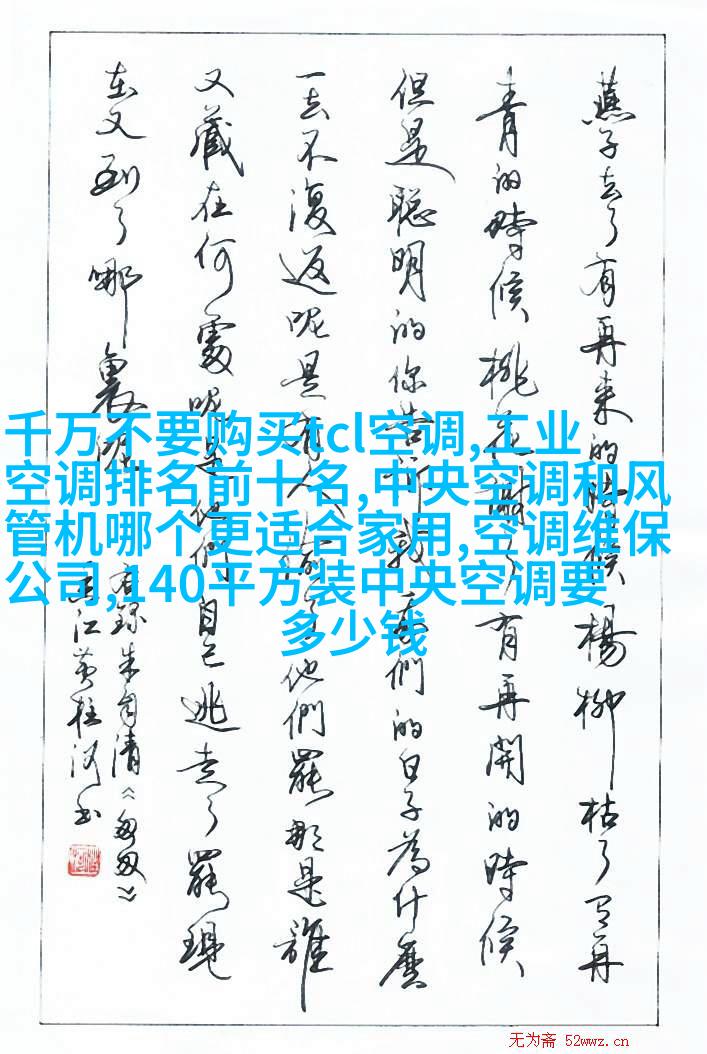 燕子去了有再来的時候楊柳枯了有再
青的時候桃花謝了有再開的時候
但是聰明的你告訴我我們的日子為什麼
一去不復返呢是有人偷了他們罷那是誰
又藏在何處呢是他們自己逃走了罷現
在又到了哪裏呢
右錄朱自清《匆匆》
江黄柱河书
千万不要购买tcl空调,工业
空调排名前十名,中央空调和风
管机哪个更适合家用,空调维保
公司,140平方装中央空调要
多少钱
无为斋 52wwz.cn